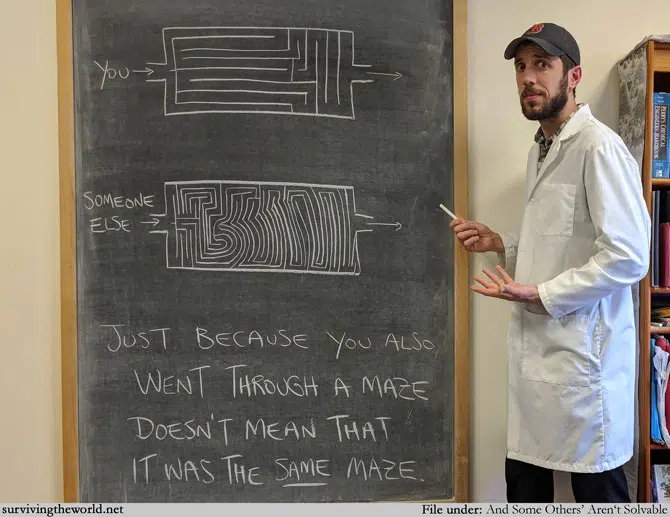 You
SOMEONE
ELSE
JUST BECAUSE YOU ALSO
WENT THROUGH A MAZE
DOESN'T MEAN THAT
IT WAS THE SAME MAZE.
PERRY'S CHEMICAL
ENGINEERS' HANDBOOK
survivingtheworld.net
File under: And Some Others' Aren't Solvable